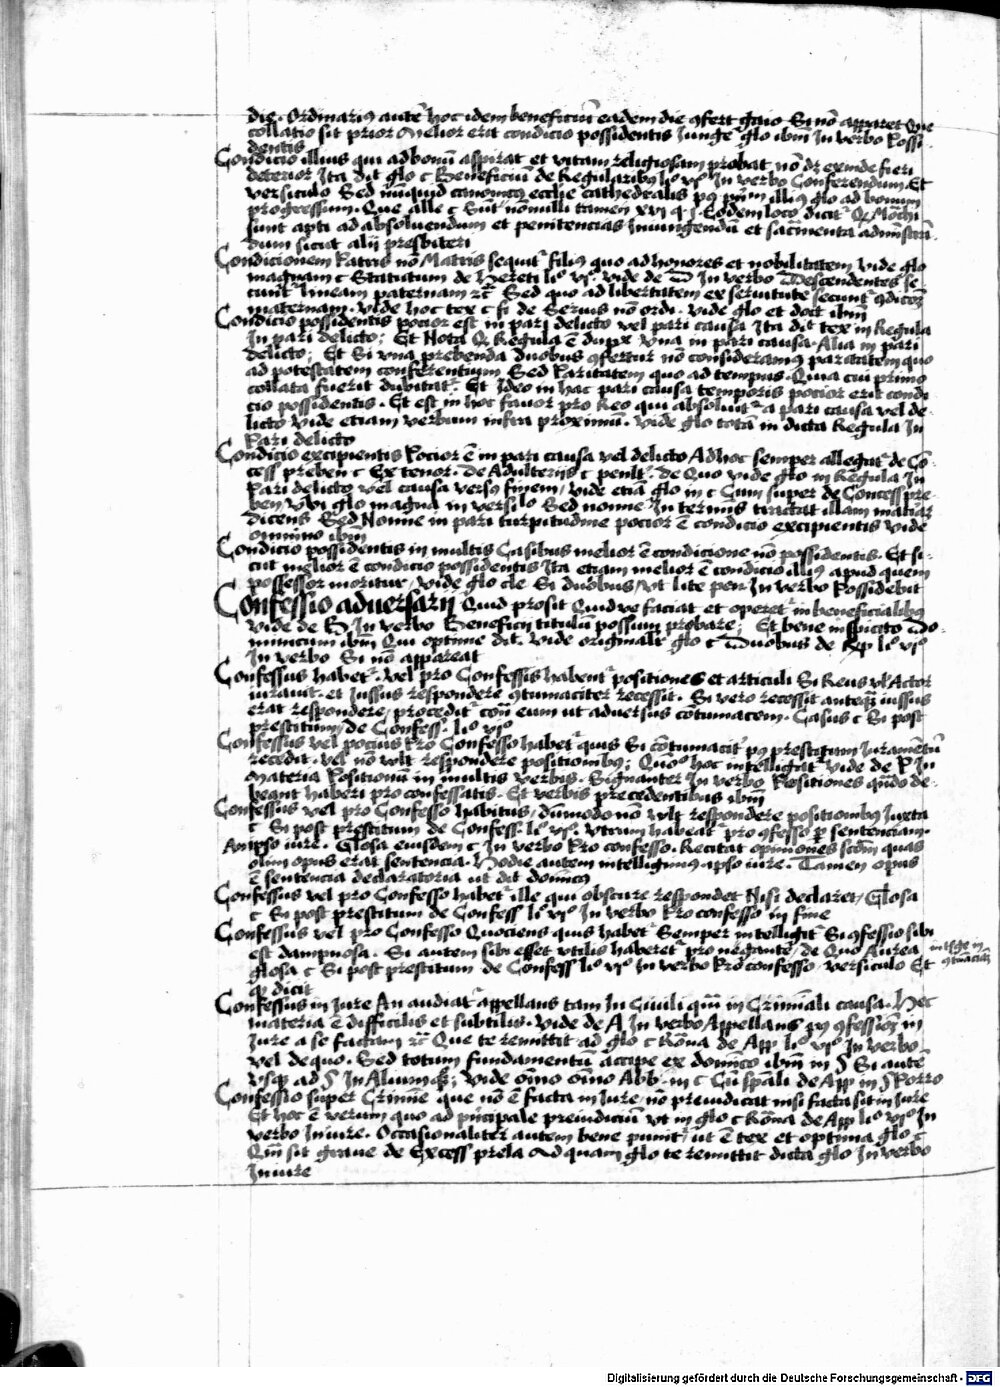 die. Ordinariꝯ autē hoc idem beneficiū eadem die ꝯfert Gaio Si nō apparet Que
collatio sit prior Melior erit condicio possidentis Junge glo ibm̄ In verbo Possi-
dentis
Condicio illius qui ad bonū aspirat et vitam religiosam probat nō dꝫ exinde fieri
deterior Ita dit glo c Beneficiū de Regularibꝯ li° vj° In verbo Conferendum. Et
versiculo Sed nūnquid canonicꝯ ecclie cathedralis
progressum. Que alle c Sūt nōnulli tamen xvj q j. Eodem loco dicit Qꝫ Mōchi
sunt apti ad absoluendum et penitencias iniungendū et sacm̄enta administrā-
dum sicut alij presbiteri
Condicionem Patris nō Matris sequit filiꝯ quo ad honores et nobilitatem vide glo
magnam c Statutum de Hereti li° vj° vide de D In verbo Descendentes se
cunt lineam paternam ꝛc Sed quo ad libertatem ex seruitute
maternam. vide hoc tex c fi de Seruis nō ordi. vide glo et doct ibm̄
Condicio possidentis pocior est in pari delicto vel pari causa Ita dit tex in Regula
In pari delicto; Et Nota Qꝫ Regula ē dupx vna in pari causa. Alia in pari
delicto; Et Si vna prebenda duobus ꝯfertur nō consideramꝯ paritatem quo
ad potestatem conferentium Sed Paritatem quo ad tempus. Quia cui primo
collata fuerit dubitat. Et Ideo in hac pari causa temporis pocior erit condi
cio possidentis. Et est in hoc fauor pro Reo qui absoluit a pari causa vel de-
licto vide etiam verbum infra proximū. vide glo totā in dicta Regula In
Pari delicto
Condicio excipientis Pocior ē in pari causa vel delicto Ad hoc semper allegat de Cō-
cess preben c Ex tenor. De Adulterijs c penlt. de Quo vide glo in Regula In
Pari delicto vel causa versꝯ finem, vide etiā glo in c Cum super de Concess pre-
ben Vbi glo magna in versilo Sed nonne In termis tractat illam materiā
dicens Sed Nonne in pari turpitudine pocior ē condicio excipientis vide
omnino ibm̄
Condicio possidentis in multis Casibus melior ē condicione nō possidentis. Et si-
cut melior ē condicio possidentis Ita etiam melior ē condicio illiꝯ apud quem
possessor moritur, vide glo cle Si duobus, vt lite pen In verbo Possidebit
Confessio aduersarij Quid prosit Quid ve faciat et operet in beneficialibꝯ
vide de B In verbo Beneficij titulū possum probare; Et bene inspicito Do-
minicum ibm̄ Qui optime dit. vide originalit glo c Duobus de Rep li° vj°
In verbo Si nō appareat
Confessus habet. vel pro Confessis habent positiones et articuli Si Reus vl Actor
iurauit. et Iussus respondere ꝯtumaciter recessit. Si vero recessit anteqꝫ iussus
erat respondere, procedit con eum ut aduersus cotumacem. Casus c Si post
prestitum, de Confess. li° vj°
Confessus vel pocius Pro Confesso habet quis Si cōtumacit pꝯ prestitum Iuramētū
recedit. vel nō vult respondere positionibꝯ; Quo° hoc intelligat vide de P In
Materia Positionū in multis verbis. Signanter In verbo Positiones qn̄do de-
beant haberi pro confessatis. Et verbis precedentibus ibm̄
Confessus vel pro Confesso habitus, dūmodo nō vlt respondere positionibꝯ Iuxta
c Si post prestitum de Confess. li° vj°. Vtrum habeat pro ꝯfesso ꝑ sentenciam.
An ipso iure. Glosa eiusdem c In verbo Pro confesso. Recitat opiniones scdm̄ quas
olim opus erat sentencia. Hodie autem intelligimus ipso iure. Tamen opus
ē sentencia declaratoria ut dit domicꝯ
Confessus vel pro Confesso habet ille qui obscure respondet Nisi declaret, Glosa
c Si post prestitum de Confess li° vj° In verbo Pro confesso in fine
Confessus vel pro Confesso Quociens quis habet Semper intelligit Si ꝯfessio sibi
est dampnosa. Si autem sibi esset vtilis haberet pro negante, de Quo Aurea
glosa c Si post prestitum de Confess li° vj° In verbo Pro confesso, versiculo Et
qꝫ dicit
Confessus in Iure An audiat appellans tam In Ciuili qꝫ in Criminali causa. Hec
materia ē difficilis et subtilis. vide de A In verbo Appellans ꝯfessioꝫ in
Iure a se factam ꝛc Que te remittit ad glo c Romā de App li° vj° In verbo
vel de quo. Sed totum fundamentū accipe ex domīco ibm̄ in § Si autē
Vsqꝫ ad § In Alium; Vide oīno oīno Abb. in c Cū spāli de App in § Porro
Confessio super Crimine que nō ē facta in Iure, no preiudicat nisi facta sit in Iure
Et hoc ē verum quo ad pincipale preiudiciū vt in glo c Romā de App li° vj° In
verbo In iure. Occasionaliter autem bene punit, ut ē tex et optima glo c
Qm̄ sit graue de Excess prela Ad quam glo te remittit dicta glo In verbo
In iure
Digitalisierung gefördert durch die Deutsche Forschungsgemeinschaft - DFG